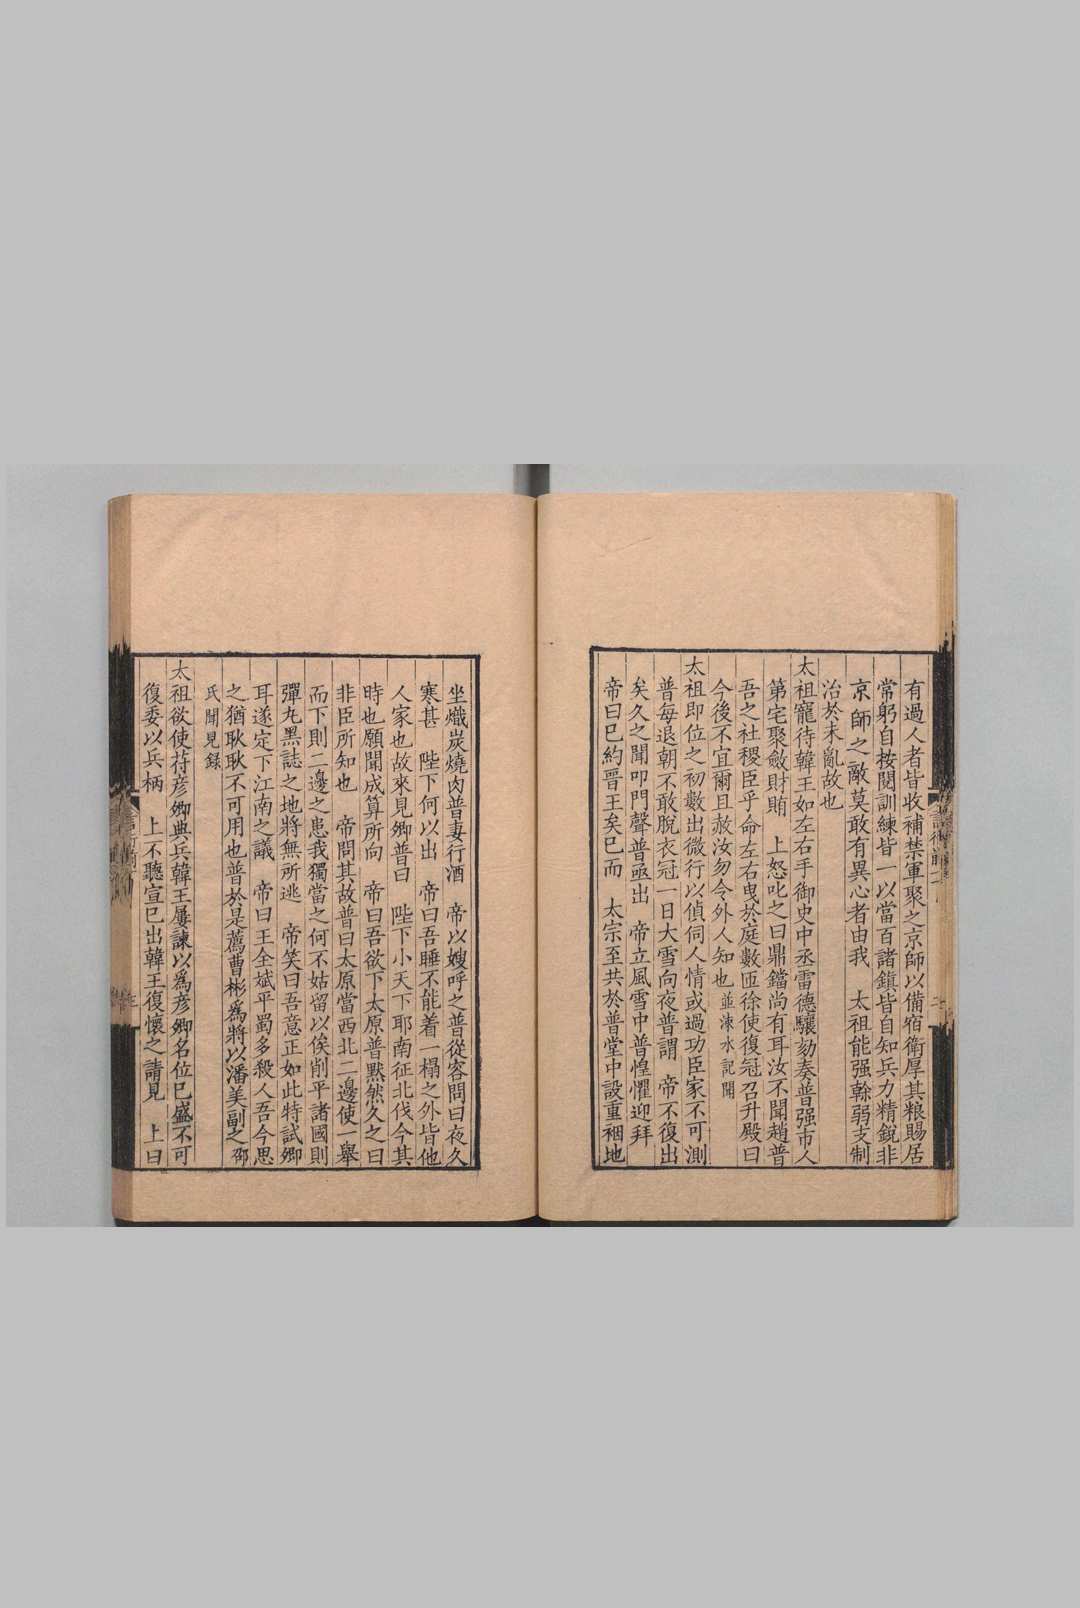 有過人者皆收補禁軍聚之京師以備宿衛厚其粮賜居
常躬自按閱訓練皆一以當百諸鎮皆自知兵力精銳非
京師之敵莫敢有異心者由我　太祖能强榦弱支制
治於未亂故也
太祖寵待韓王如左右手御史中丞雷德驤劾奏普强市人
第宅聚斂財賄　上怒叱之曰鼎鐺尚有耳汝不聞趙普
吾之社稷臣乎命左右曳於庭數匝徐使復冠召升殿曰
今後不宜爾且赦汝勿令外人知也並涑水記聞
太祖即位之初數出微行以偵伺人情或過功臣家不可測
普每退朝不敢脫衣冠一日大雪向夜普謂　帝不復出
矣久之聞叩門聲普亟出　帝立風雪中普惶懼迎拜
帝曰已約晋王矣已而　太宗至共於普堂中設重裀地
坐熾炭燒肉普妻行酒　帝以嫂呼之普從容問曰夜久
寒甚　陛下何以出　帝曰吾睡不能着一榻之外皆他
人家也故來見卿普曰　陛下小天下耶南征北伐今其
時也願聞成算所向　帝曰吾欲下太原普默然久之曰
非臣所知也　帝問其故普曰太原當西北二邊使一舉
而下則二邊之患我獨當之何不姑留以俟削平諸國則
彈丸黑誌之地將無所逃　帝笑曰吾意正如此特試卿
耳遂定下江南之議　帝曰王全斌平蜀多殺人吾今思
之猶耿耿不可用也普於是薦曹彬爲將以潘美副之邵
氏聞見錄
太祖欲使苻彦卿典兵韓王屢諫以爲彦卿名位已盛不可
復委以兵柄　上不聽宣已出韓王復懷之請見　上曰